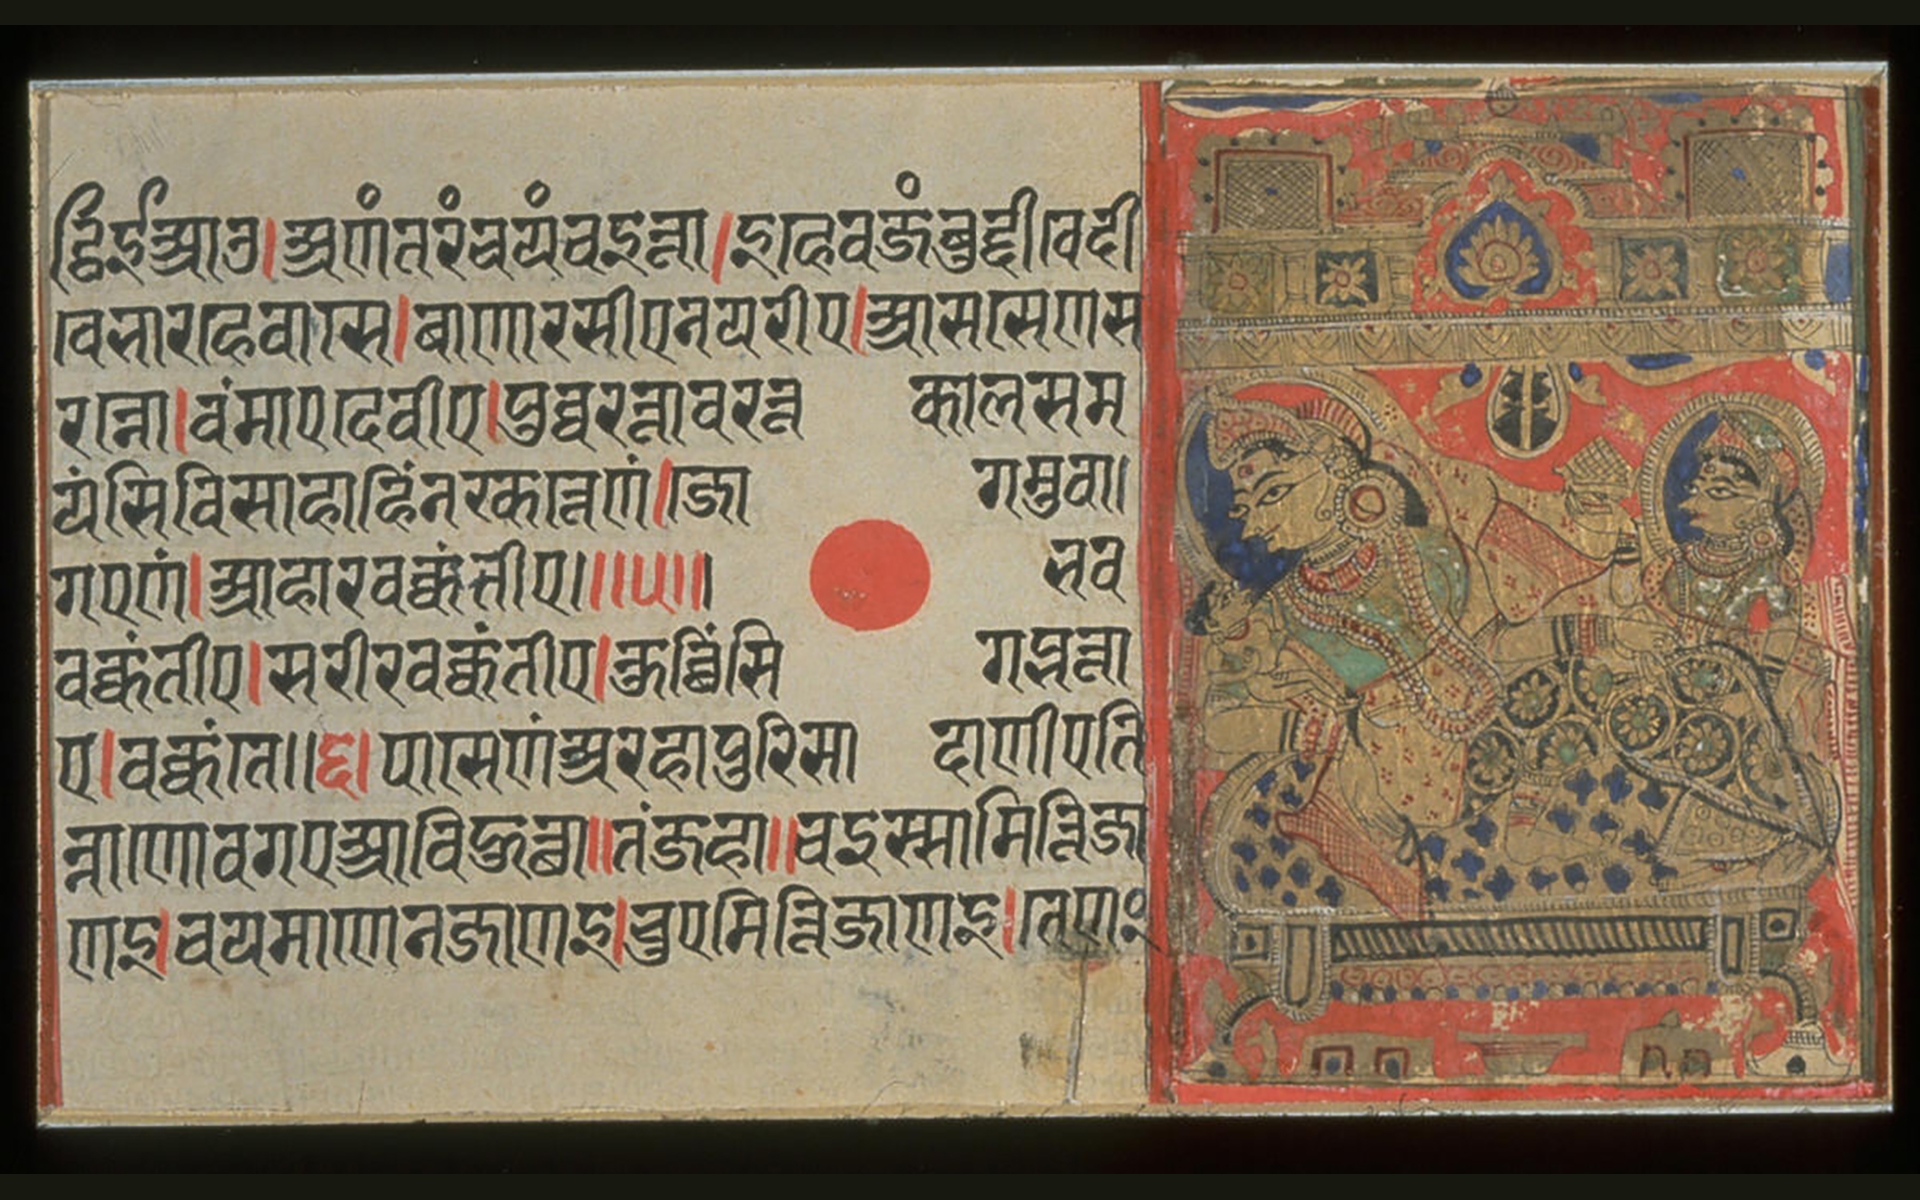 ट्ठिईआओ।अणंतरंचयंचइत्ता।इहेवजंबुद्दीवेदी
वेभारहेवासे।बाणारसीएनयरीए।आससेणस
रन्नो।वंमाएदेवीए।पुव्वरत्तावरत्त कालसम
यंसिविसाहाहिंनरकत्तेणं।जो गमुवा।
गएणं।आहारवक्कंतीए।॥५॥। भव
वक्कंतीए।सरीरवक्कंतीए।कुच्छिंसि गब्भत्ता
ए।वक्कंते॥६।पासेणंअरहापुरिसा दाणीएति
न्नाणोवगएआविहुत्था॥तंजहा॥चइस्सामित्तिजा
णइ।चयमाणेनजाणइ।चुएमित्तिजाणइ।